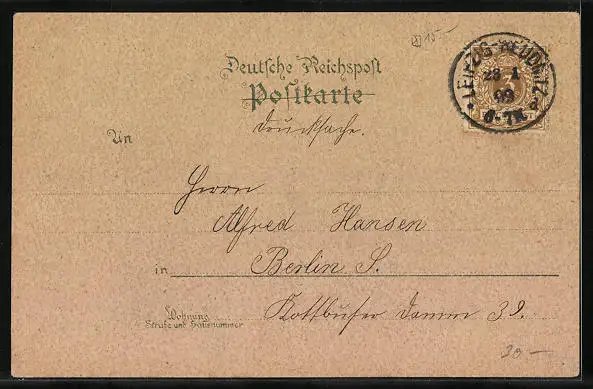 15.-
Deutsche Reichspost
Postkarte
Drucksache.
LEIPZIG-REUDNITZ
28 1
99
6-7N.
3
An
Herrn
Alfred Hansen
in Berlin S.
Wohnung
Straße und Hausnummer
Kottbuser Damm 32.
30-